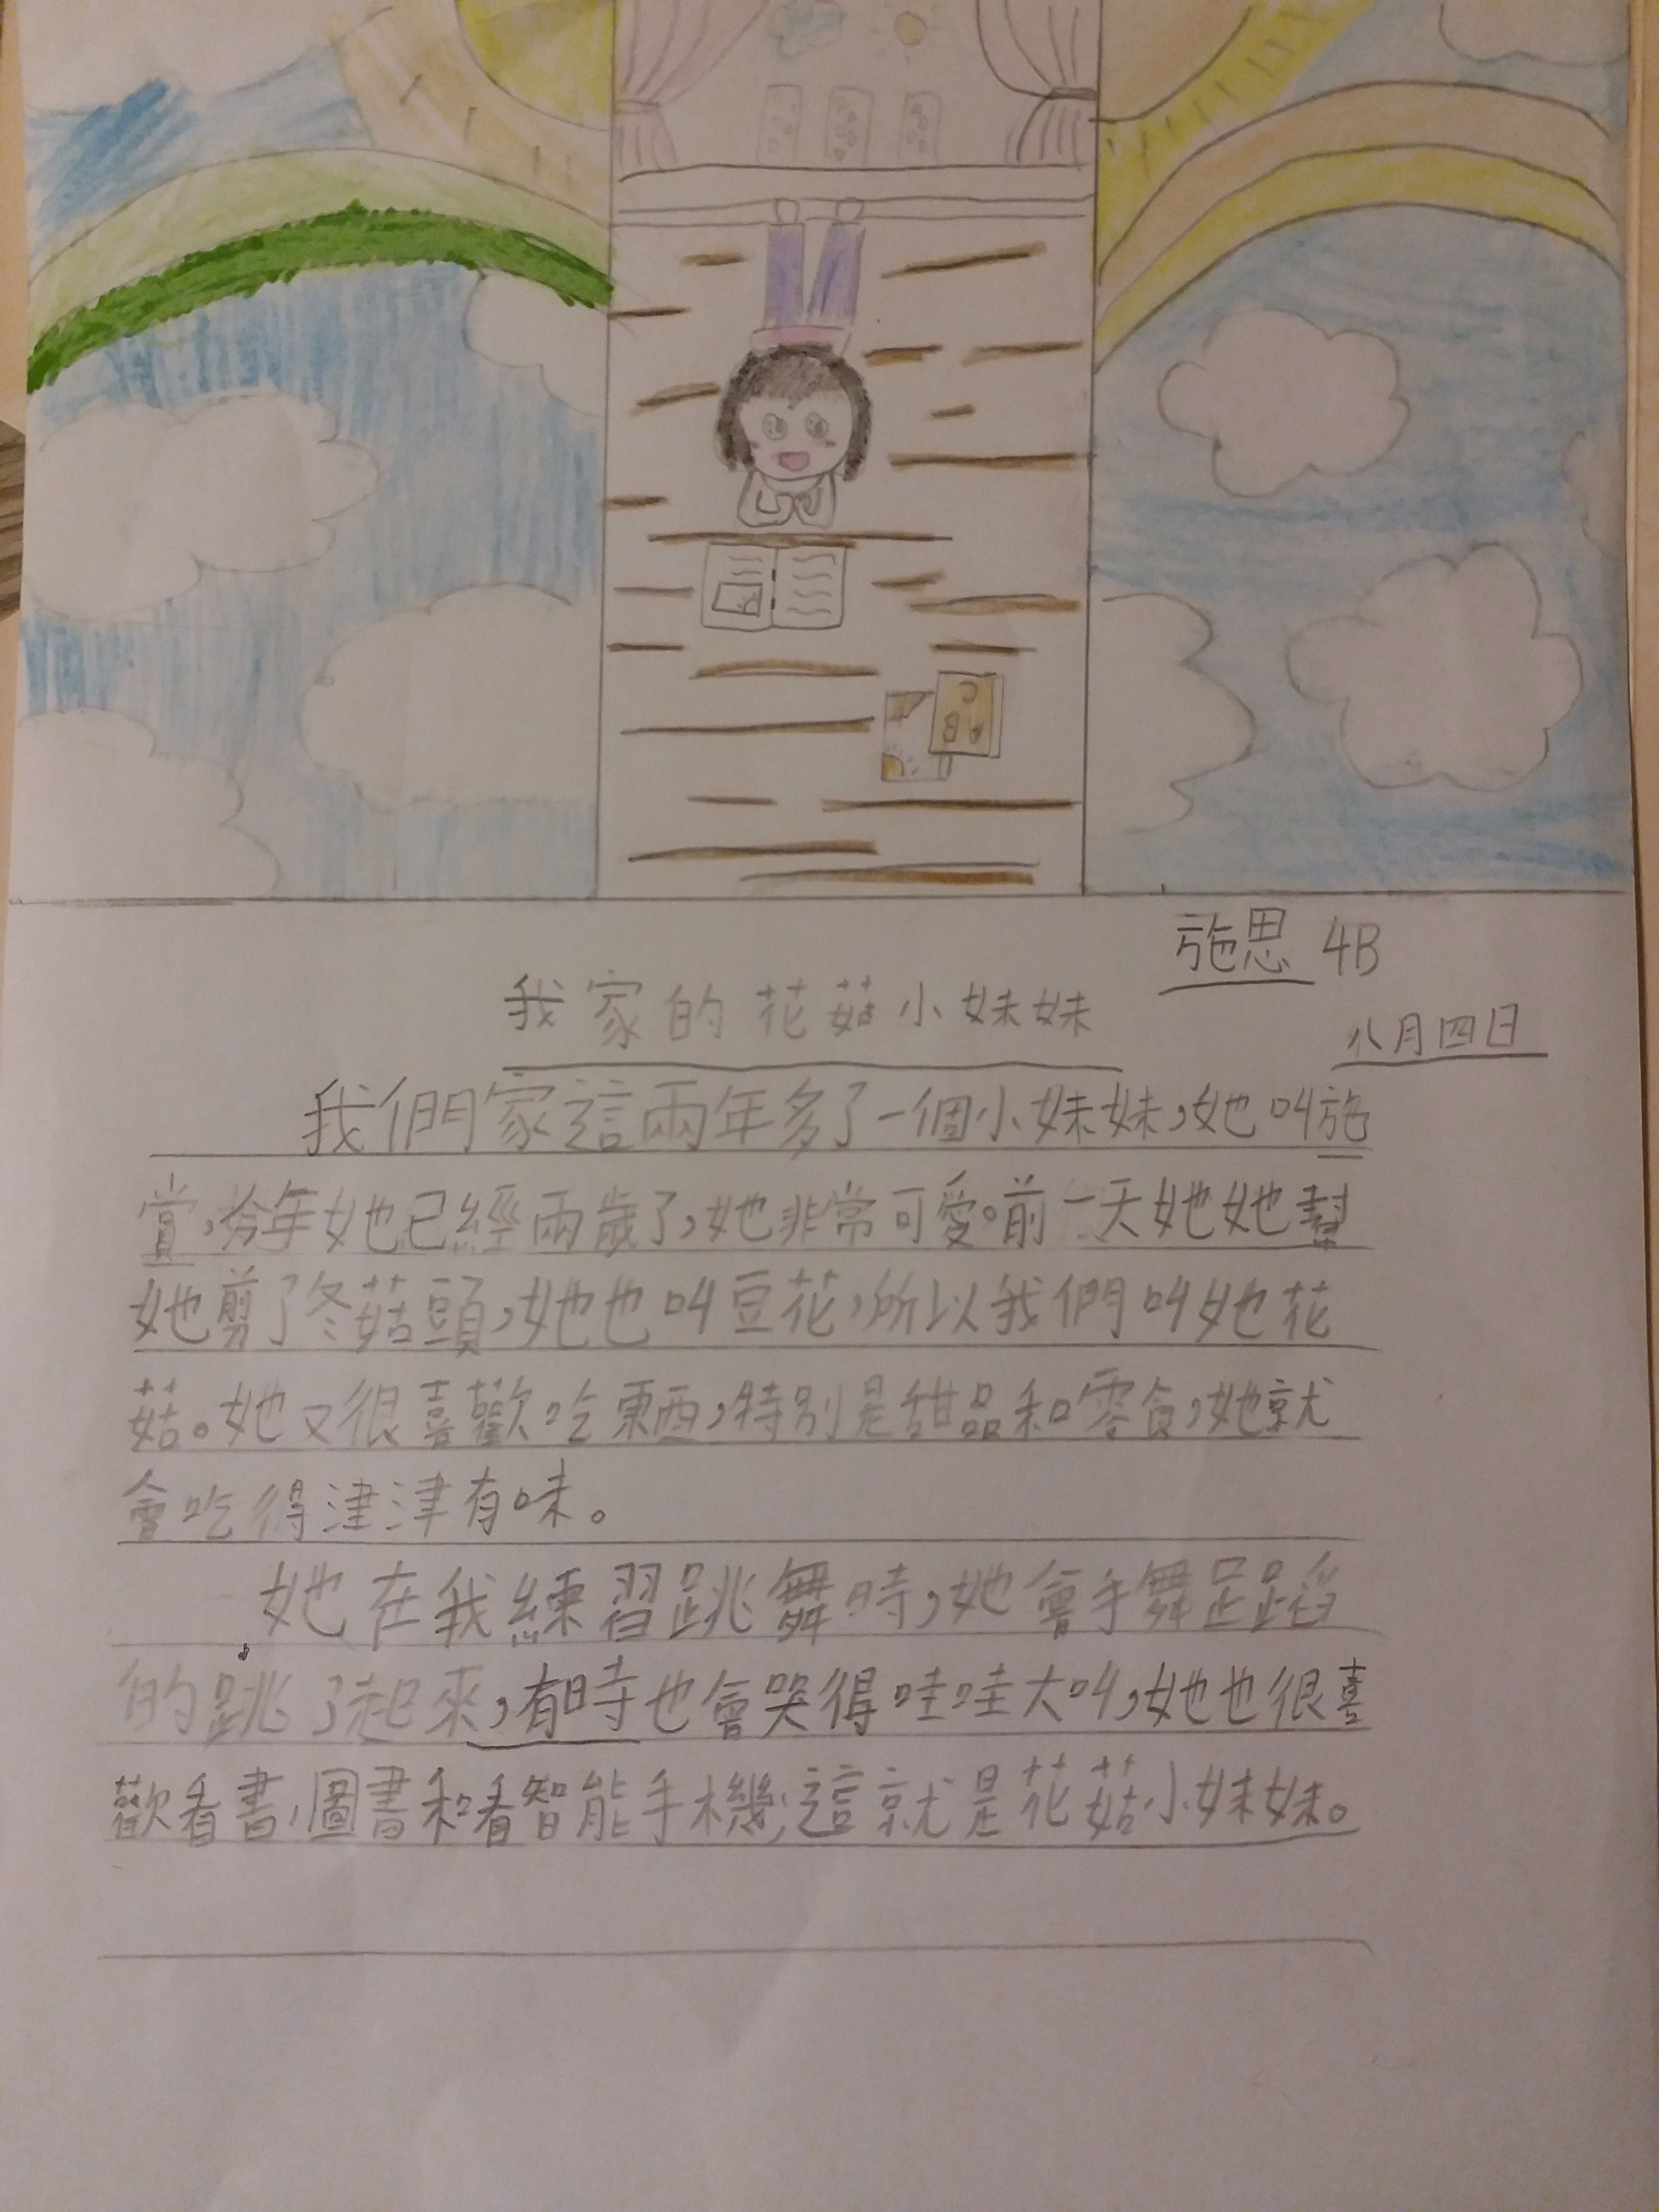 A B
C
施思 4B
我家的花菇小妹妹
八月四日
我們家這兩年多了一個小妹妹，她叫施
賞，今年她已經兩歲了，她非常可愛。前一天她她幫
她剪了冬菇頭，她也叫豆花，所以我們叫她花
菇。她又很喜歡吃東西，特別是甜品和零食，她就
會吃得津津有味。
她在我練習跳舞時，她會手舞足蹈
的跳了起來，有時也會哭得哇哇大叫，她也很喜
歡看書，圖書和看智能手機，這就是花菇小妹妹。